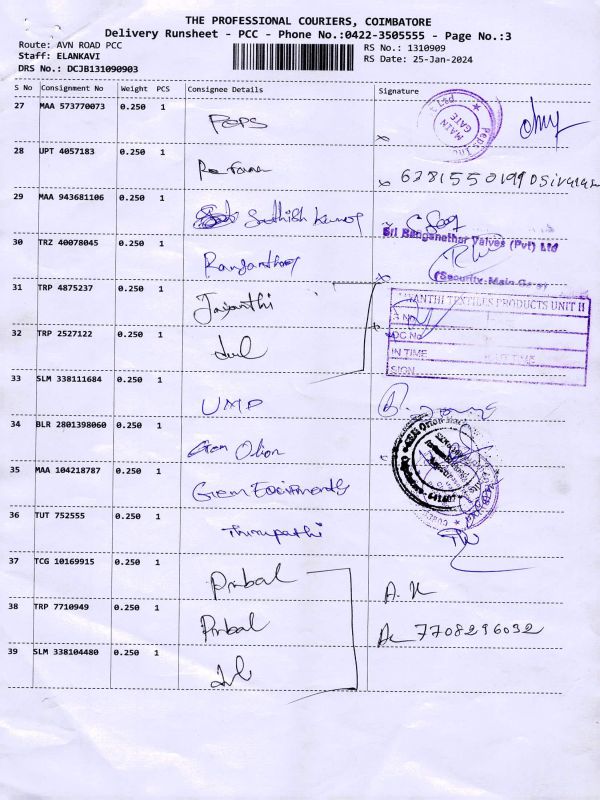 THE PROFESSIONAL COURIERS, COIMBATORE
Delivery Runsheet - PCC - Phone No.:0422-3505555 - Page No.:3
Route: AVN ROAD PCC
RS No.: 1310909
Staff: ELANKAVI
RS Date: 25-Jan-2024
DRS No.: DCJB131090903
S No Consignment No Weight PCS Consignee Details Signature
27 MAA 573770073 0.250 1 Peps
MAIN GATE
28 UPT 4057183 0.250 1
29 MAA 943681106 0.250 1 Suthish Kumar
Sri Ranganathar Valves (Pvt) Ltd
30 TRZ 40078045 0.250 1
(Security-Main Gate)
31 TRP 4875237 0.250 1 Jayanthi
JAYANTHI TEXTILES PRODUCTS UNIT II
32 TRP 2527122 0.250 1
DC No
IN TIME
SIGN
33 SLM 338111684 0.250 1 UMP
34 BLR 2801398060 0.250 1 Gem Orion
35 MAA 104218787 0.250 1 Gem Equipments
36 TUT 752555 0.250 1 Thirupathi
37 TCG 10169915 0.250 1 Prabal
38 TRP 7710949 0.250 1 Prabal 7708296032
39 SLM 338104480 0.250 1